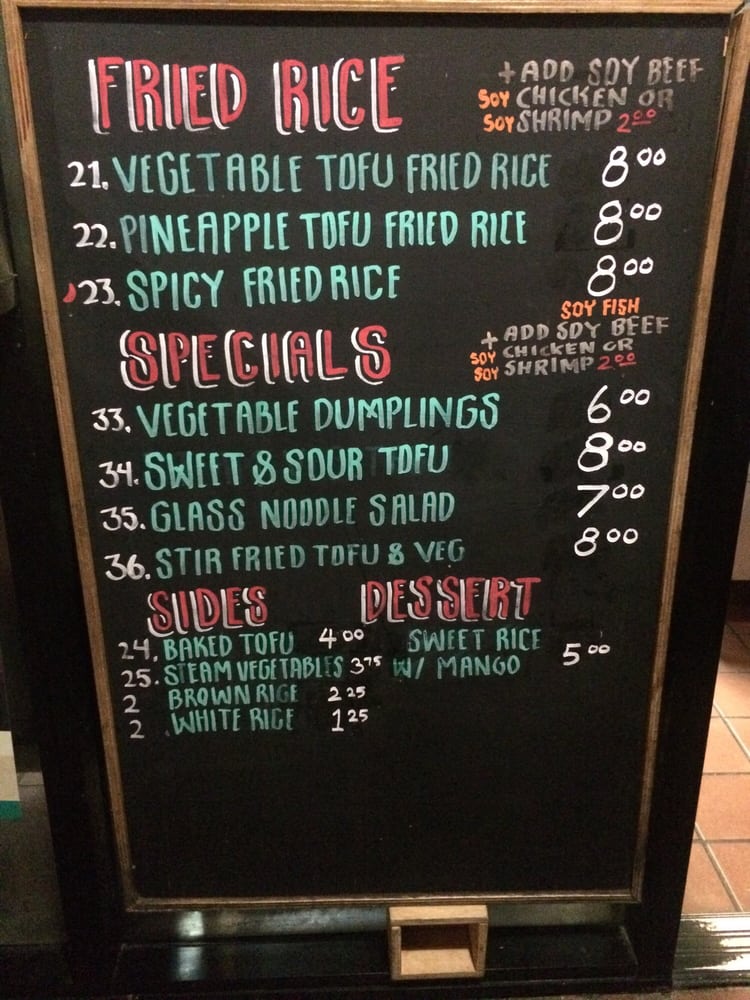 FRIED RICE
+ ADD SOY BEEF
SOY CHICKEN OR
SOY SHRIMP 2 00
21. VEGETABLE TOFU FRIED RICE 8 00
22. PINEAPPLE TOFU FRIED RICE 8 00
23. SPICY FRIED RICE 8 00
SPECIALS
SOY FISH
+ ADD SOY BEEF
SOY CHICKEN OR
SOY SHRIMP 2 00
33. VEGETABLE DUMPLINGS 6 00
34. SWEET & SOUR TOFU 8 00
35. GLASS NOODLE SALAD 7 00
36. STIR FRIED TOFU & VEG 8 00
SIDES
24. BAKED TOFU 4 00
25. STEAM VEGETABLES 3 75
2 BROWN RICE 2 25
2 WHITE RICE 1 25
DESSERT
SWEET RICE
W/ MANGO 5 00